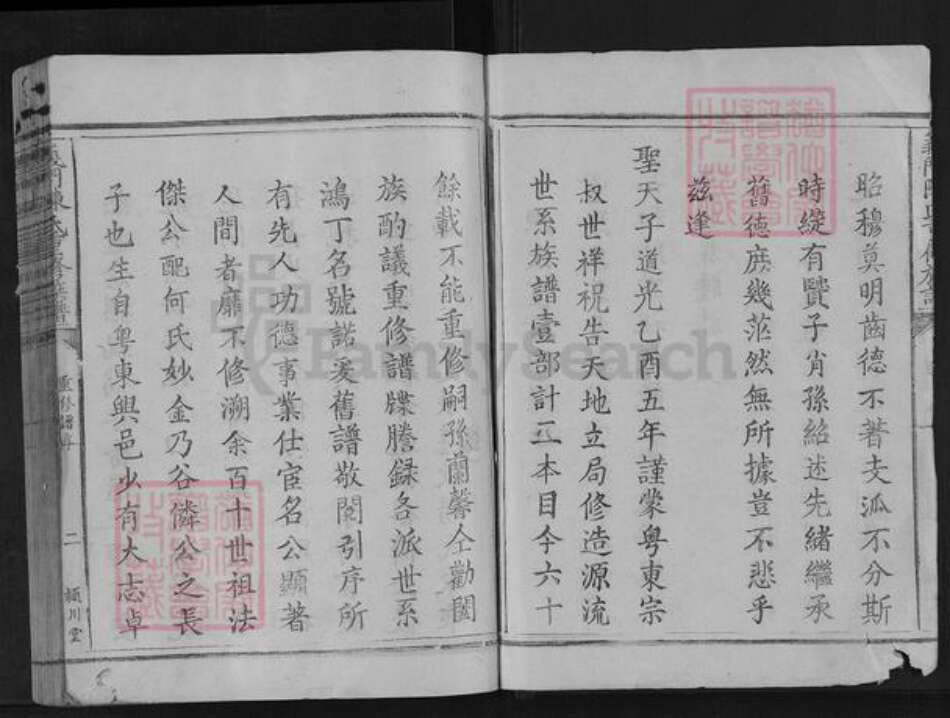 昭穆奠明齒德不著支派不分斯
時縱有賢子肖孫紹述先緒繼承
舊德庶幾茫然無所據豈不悲乎
茲逢
聖天子道光乙酉五年謹蒙粵東宗
叔世祥祝告天地立局修造源流
世系族譜壹部計三本目今六十
餘載不能重修嗣孫蘭馨仝勸闔
族酌議重修譜牒謄録各派世系
鴻丁名號諾爰舊譜敬閱引序所
有先人功德事業仕宦名公顯著
人間者靡不修溯余百十世祖法
傑公配何氏妙金乃谷憐公之長
子也生自粵東興邑少有大志卓
重修譜序
二
潁川堂
FamilySearch